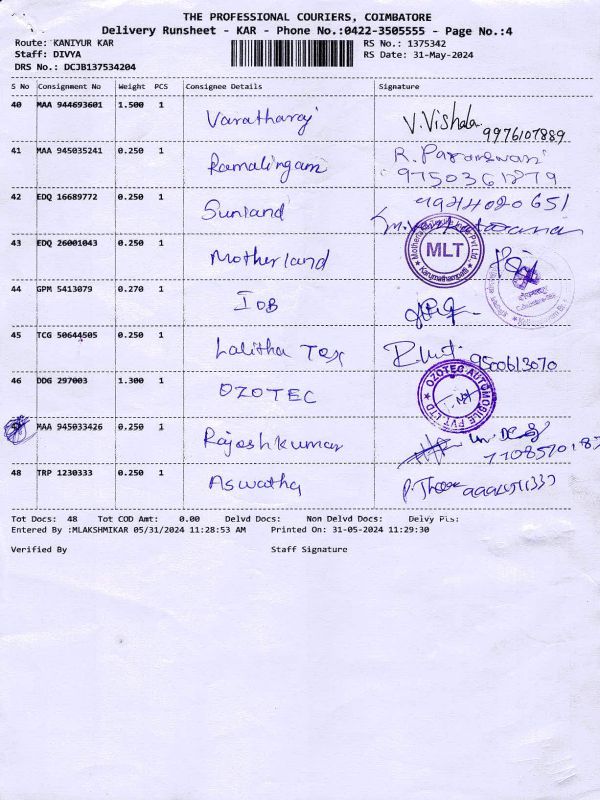 THE PROFESSIONAL COURIERS, COIMBATORE
Delivery Runsheet - KAR - Phone No.:0422-3505555 - Page No.:4
Route: KANIYUR KAR RS No.: 1375342
Staff: DIVYA RS Date: 31-May-2024
DRS No.: DCJB137534204
S No Consignment No Weight PCS Consignee Details Signature
40 MAA 944693601 1.500 1 Varatharaj V.Vishala 9976107889
41 MAA 945035241 0.250 1 Ramalingam R. Parameswari 9750361879
42 EDQ 16689772 0.250 1 Sunland 9944020651
43 EDQ 26001043 0.250 1 Motherland MLT
44 GPM 5413079 0.270 1 IOB
45 TCG 50644505 0.250 1 Lalitha Tex 9500613070
46 DDG 297003 1.300 1 OZOTEC OZOTEC AUTOMOBILE PVT LTD
MAA 945033426 0.250 1 Rajeshkumar
48 TRP 1230333 0.250 1 Aswatha
Tot Docs: 48 Tot COD Amt: 0.00 Delvd Docs: Non Delvd Docs: Delvy Pls:
Entered By :MLAKSHMIKAR 05/31/2024 11:28:53 AM Printed On: 31-05-2024 11:29:30
Verified By Staff Signature